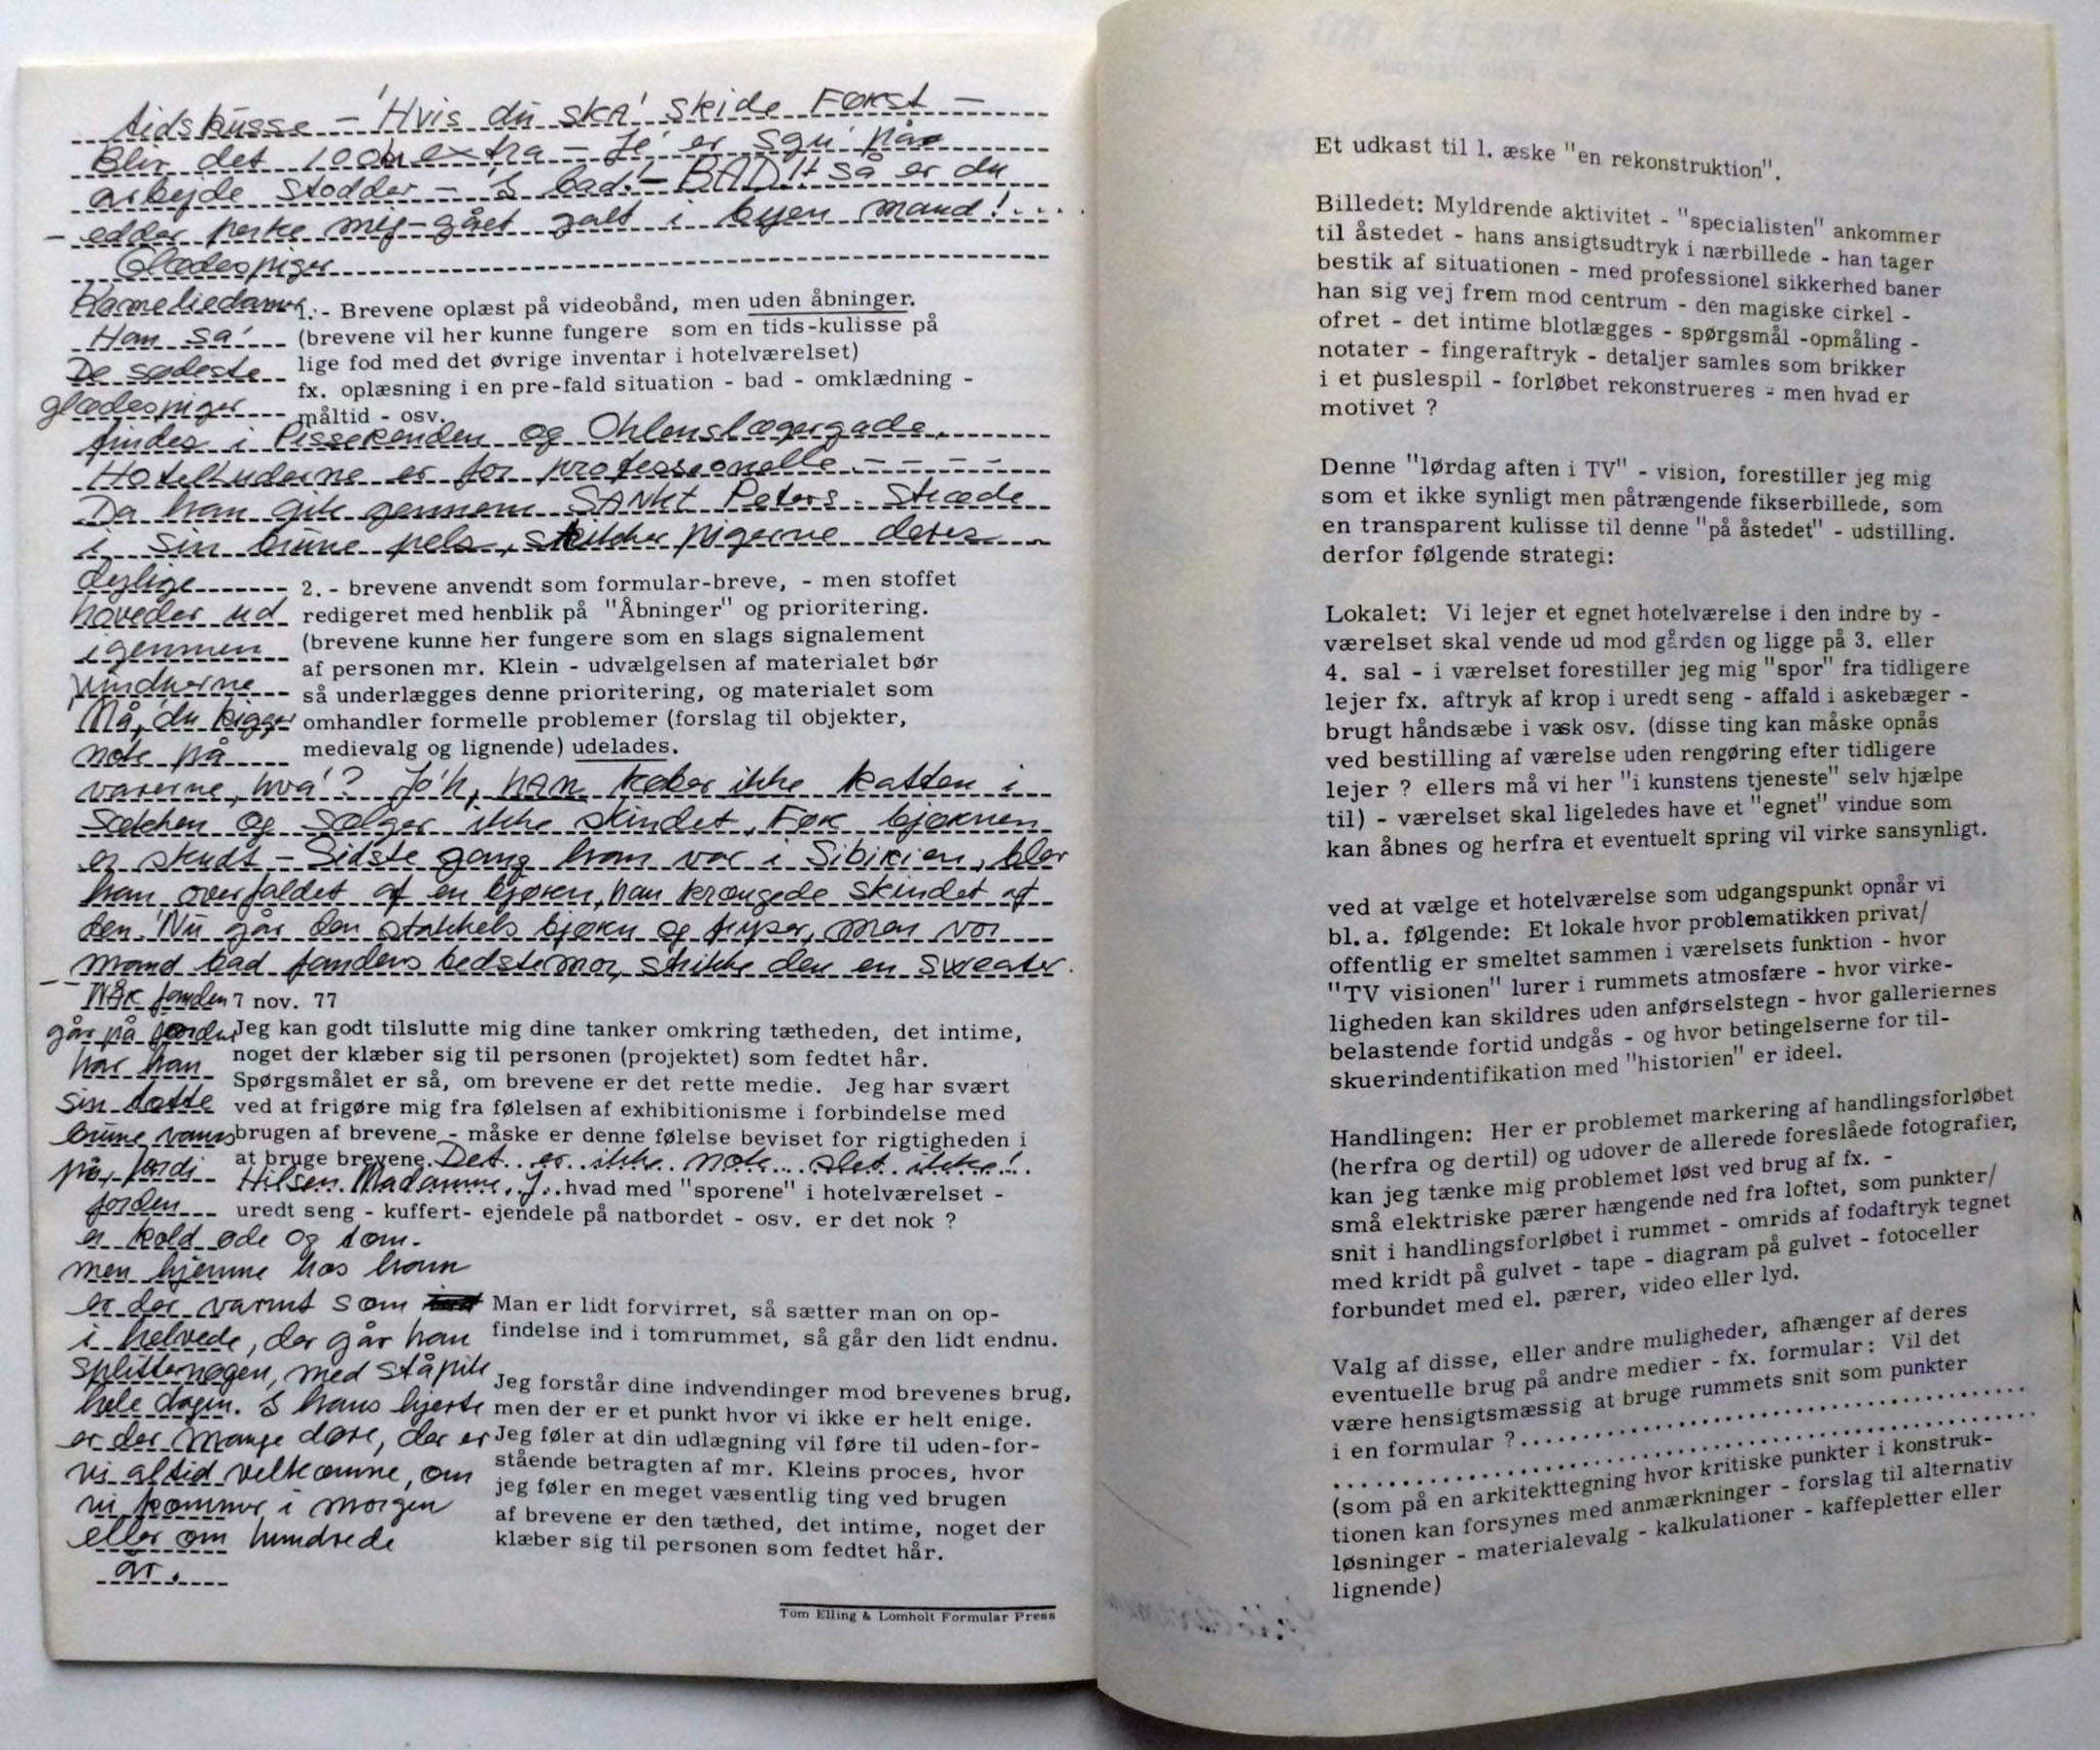 tidskusse - 'Hvis du ska' skide FØRST -
Blir det 100kr extra - Je' er sgu' på
arbejde stodder - 's bad! - BAD!! så er du
- edder perke mig - gået galt i byen mand! . . . .
Glædespiger
Kameliedamer
Han sa'
De sødeste
glædespiger
1. - Brevene oplæst på videobånd, men uden åbninger.
(brevene vil her kunne fungere som en tids-kulisse på
lige fod med det øvrige inventar i hotelværelset)
fx. oplæsning i en pre-fald situation - bad - omklædning -
måltid - osv.
findes i Pisserenden og Ohlenslægergade.
Hotelluderne er for professionelle - - - -
Da han gik gennem SANKT Peters - Stræde
i sin brune pels, stikker pigerne deres
dejlige
hoveder ud
igennem
vinduerne
Nå, du kigger
nok på
2. - brevene anvendt som formular-breve, - men stoffet
redigeret med henblik på "Åbninger" og prioritering.
(brevene kunne her fungere som en slags signalement
af personen mr. Klein - udvælgelsen af materialet bør
så underlægges denne prioritering, og materialet som
omhandler formelle problemer (forslag til objekter,
medievalg og lignende) udelades.
varerne, hva'? Jo'h, HAN køber ikke katten i
sækken og sælger ikke skindet, FØR bjørnen
er skudt - Sidste gang han var i Sibirien, blev
han overfaldet af en bjørn, han krængede skindet af
den. Nu går den stakkels bjørn og fryser, men vor
mand bad fandens bedstemor, strikke den en sweater.
NÅR fanden
går på jorden
har han
sin
brune vams
på, fordi
jorden
er kold øde og tom.
men hjemme hos ham
er der varmt som
i helvede, der går han
splitternøgen, med ståpik
hele dagen. I hans hjerte
er der mange døre, der er
vi altid velkomne, om
vi kommer i morgen
eller om hundrede
år.
7 nov. 77
Jeg kan godt tilslutte mig dine tanker omkring tætheden, det intime,
noget der klæber sig til personen (projektet) som fedtet hår.
Spørgsmålet er så, om brevene er det rette medie. Jeg har svært
ved at frigøre mig fra følelsen af exhibitionisme i forbindelse med
brugen af brevene - måske er denne følelse beviset for rigtigheden i
at bruge brevene. Det er ikke nok slet ikke!
Hilsen Madamme. J. . hvad med "sporene" i hotelværelset -
uredt seng - kuffert- ejendele på natbordet - osv. er det nok ?
Man er lidt forvirret, så sætter man on op-
findelse ind i tomrummet, så går den lidt endnu.
Jeg forstår dine indvendinger mod brevenes brug,
men der er et punkt hvor vi ikke er helt enige.
Jeg føler at din udlægning vil føre til uden-for-
stående betragten af mr. Kleins proces, hvor
jeg føler en meget væsentlig ting ved brugen
af brevene er den tæthed, det intime, noget der
klæber sig til personen som fedtet hår.
Tom Elling & Lomholt Formular Press
Et udkast til 1. æske "en rekonstruktion".
Billedet: Myldrende aktivitet - "specialisten" ankommer
til åstedet - hans ansigtsudtryk i nærbillede - han tager
bestik af situationen - med professionel sikkerhed baner
han sig vej frem mod centrum - den magiske cirkel -
ofret - det intime blotlægges - spørgsmål -opmåling -
notater - fingeraftryk - detaljer samles som brikker
i et puslespil - forløbet rekonstrueres - men hvad er
motivet ?
Denne "lørdag aften i TV" - vision, forestiller jeg mig
som et ikke synligt men påtrængende fikserbillede, som
en transparent kulisse til denne "på åstedet" - udstilling.
derfor følgende strategi:
Lokalet: Vi lejer et egnet hotelværelse i den indre by -
værelset skal vende ud mod gården og ligge på 3. eller
4. sal - i værelset forestiller jeg mig "spor" fra tidligere
lejer fx. aftryk af krop i uredt seng - affald i askebæger -
brugt håndsæbe i vask osv. (disse ting kan måske opnås
ved bestilling af værelse uden rengøring efter tidligere
lejer ? ellers må vi her "i kunstens tjeneste" selv hjælpe
til) - værelset skal ligeledes have et "egnet" vindue som
kan åbnes og herfra et eventuelt spring vil virke sansynligt.
ved at vælge et hotelværelse som udgangspunkt opnår vi
bl. a. følgende: Et lokale hvor problematikken privat/
offentlig er smeltet sammen i værelsets funktion - hvor
"TV visionen" lurer i rummets atmosfære - hvor virke-
ligheden kan skildres uden anførselstegn - hvor galleriernes
belastende fortid undgås - og hvor betingelserne for til-
skuerindentifikation med "historien" er ideel.
Handlingen: Her er problemet markering af handlingsforløbet
(herfra og dertil) og udover de allerede foreslåede fotografier,
kan jeg tænke mig problemet løst ved brug af fx. -
små elektriske pærer hængende ned fra loftet, som punkter/
snit i handlingsforløbet i rummet - omrids af fodaftryk tegnet
med kridt på gulvet - tape - diagram på gulvet - fotoceller
forbundet med el. pærer, video eller lyd.
Valg af disse, eller andre muligheder, afhænger af deres
eventuelle brug på andre medier - fx. formular: Vil det
være hensigtsmæssig at bruge rummets snit som punkter
i en formular ?
(som på en arkitekttegning hvor kritiske punkter i konstruk-
tionen kan forsynes med anmærkninger - forslag til alternativ
løsninger - materialevalg - kalkulationer - kaffepletter eller
lignende)